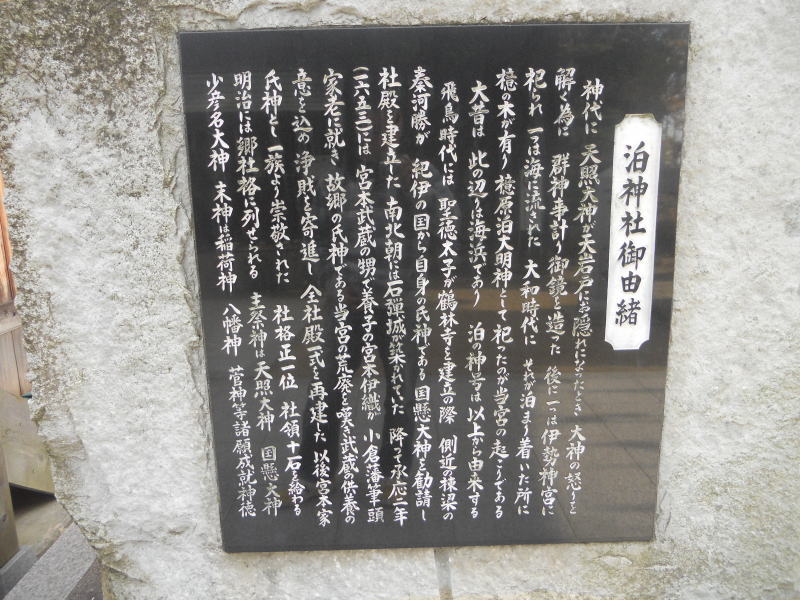 泊神社御由緒
神代に 天照大神が天岩戸にお隠れになったとき 大神の怒りを
解く為に 群神事計り御鏡を造った 後に一つは伊勢神宮に
祀られ 一つは海に流された 大和時代に それが泊まり着いた所に
檍の木が有り 檍原泊大明神として 祀ったのが当宮の起こりである
大昔は 此の辺は海浜であり 泊の神号は 以上から由来する
飛鳥時代には 聖徳太子が鶴林寺を建立の際 側近の棟梁の
秦河勝が 紀伊の国から自身の氏神である 国懸大神を勧請し
社殿を建立した 南北朝には石弾城が築かれていた 降って承応二年
(一六五三)には 宮本武蔵の甥で養子の宮本伊織が 小倉藩筆頭
家老に就き 故郷の氏神である当宮の荒廃を嘆き武蔵の供養の
意を込め 浄財を寄進し 全社殿一式を再建した 以後宮本家
氏神とし 一族より崇敬された 社格正一位 社領十石を給わる
明治には 郷社格に列せられる 主祭神は 天照大神 国懸大神
少彦名大神 末神は稲荷神 八幡神 菅神等諸願成就神徳